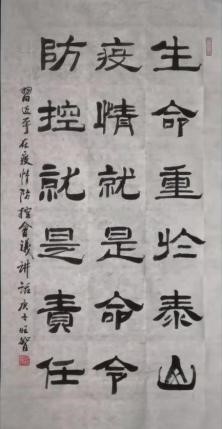 生命重於泰山
疫情就是命令
防控就是責任
習近平在疫情防控會議講話庚子旺智